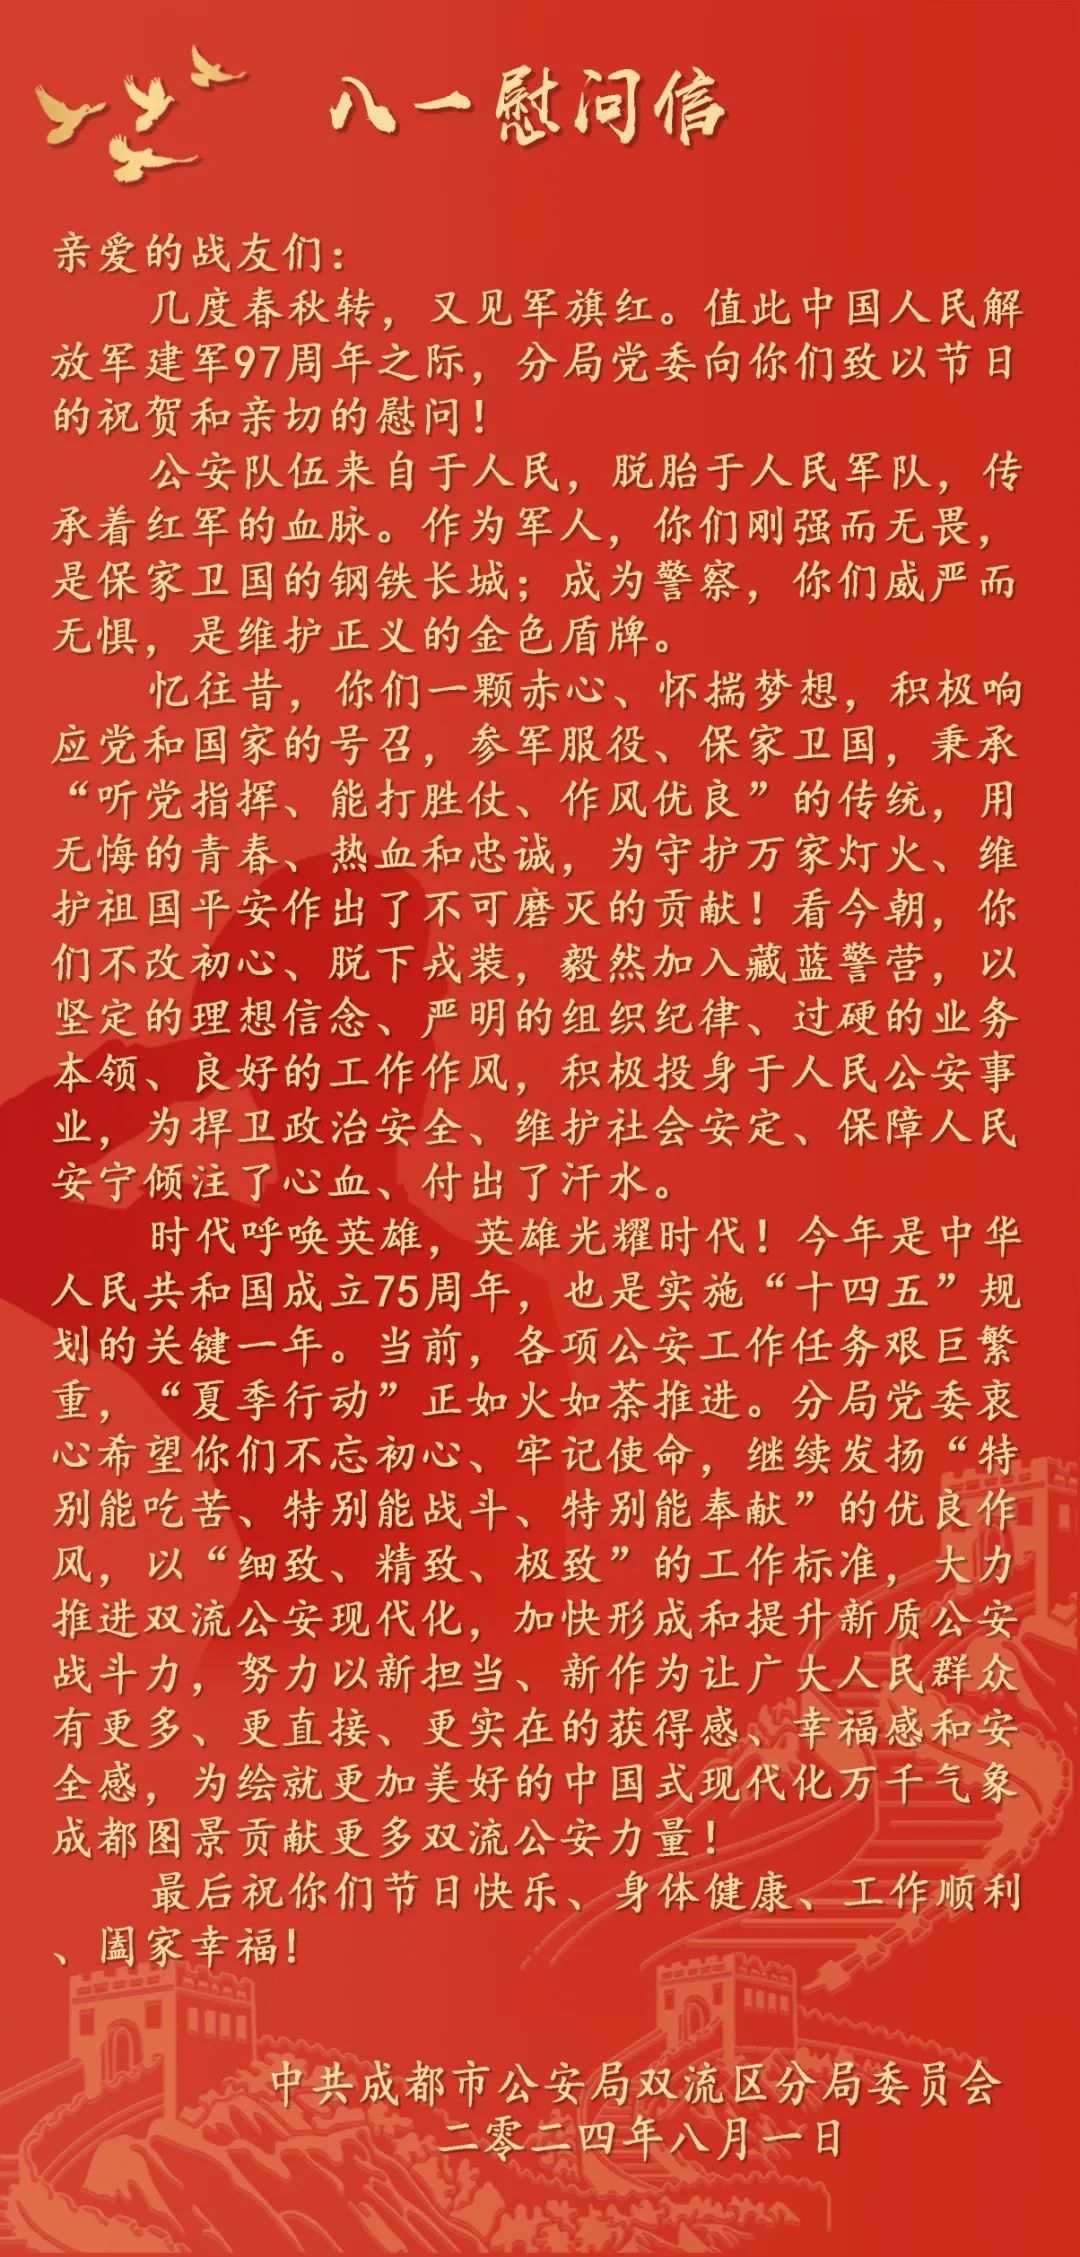 八一慰问信
亲爱的战友们：
几度春秋转，又见军旗红。值此中国人民解
放军建军97周年之际，分局党委向你们致以节日
的祝贺和亲切的慰问！
公安队伍来自于人民，脱胎于人民军队，传
承着红军的血脉。作为军人，你们刚强而无畏，
是保家卫国的钢铁长城；成为警察，你们威严而
无惧，是维护正义的金色盾牌。
忆往昔，你们一颗赤心、怀揣梦想，积极响
应党和国家的号召，参军服役、保家卫国，秉承
“听党指挥、能打胜仗、作风优良”的传统，用
无悔的青春、热血和忠诚，为守护万家灯火、维
护祖国平安作出了不可磨灭的贡献！看今朝，你
们不改初心、脱下戎装，毅然加入藏蓝警营，以
坚定的理想信念、严明的组织纪律、过硬的业务
本领、良好的工作作风，积极投身于人民公安事
业，为捍卫政治安全、维护社会安定、保障人民
安宁倾注了心血、付出了汗水。
时代呼唤英雄，英雄光耀时代！今年是中华
人民共和国成立75周年，也是实施“十四五”规
划的关键一年。当前，各项公安工作任务艰巨繁
重，“夏季行动”正如火如荼推进。分局党委衷
心希望你们不忘初心、牢记使命，继续发扬“特
别能吃苦、特别能战斗、特别能奉献”的优良作
风，以“细致、精致、极致”的工作标准，大力
推进双流公安现代化，加快形成和提升新质公安
战斗力，努力以新担当、新作为让广大人民群众
有更多、更直接、更实在的获得感、幸福感和安
全感，为绘就更加美好的中国式现代化万千气象
成都图景贡献更多双流公安力量！
最后祝你们节日快乐、身体健康、工作顺利
、阖家幸福！
中共成都市公安局双流区分局委员会
二零二四年八月一日